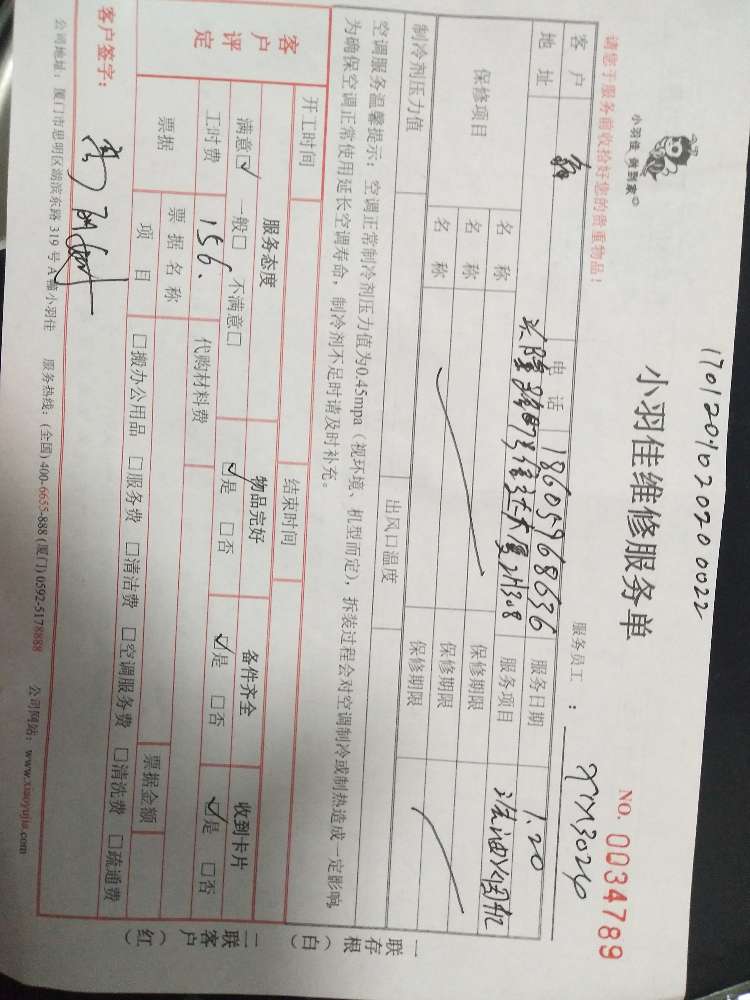 170120102020 0022
小羽佳 做到家
小羽佳维修服务单
NO. 0034789
请您于服务前收拾好您的贵重物品!
服务员工 : XM3026
客户 电话 18605968636 服务日期 1.20
地址 2#308 服务项目
保修项目 名称 保修期限
名称 保修期限
名称 保修期限
制冷剂压力值 出风口温度
空调服务温馨提示:空调正常制冷剂压力值为0.45mpa(视环境、机型而定),拆装过程会对空调制冷或制热造成一定影响,
为确保空调正常使用延长空调寿命,制冷剂不足时请及时补充。
开工时间 结束时间
客户评定 服务态度 物品完好 备件齐全 收到卡片
满意☑ 一般□ 不满意□ ☑是 □否 ☑是 □否 ☑是 □否
工时费 156. 代购材料费
票据 票据名称 票据金额
项目 □搬办公用品 □服务费 □清洁费 □空调服务费 □清洗费 □疏通费
客户签字:
公司地址:厦门市思明区湖滨东路319号A幢小羽佳 服务热线:(全国)400-6655-888 (厦门) 0592-5178888 公司网站:www.xiaoyujia.com
一联存根(白)
二联客户(红)